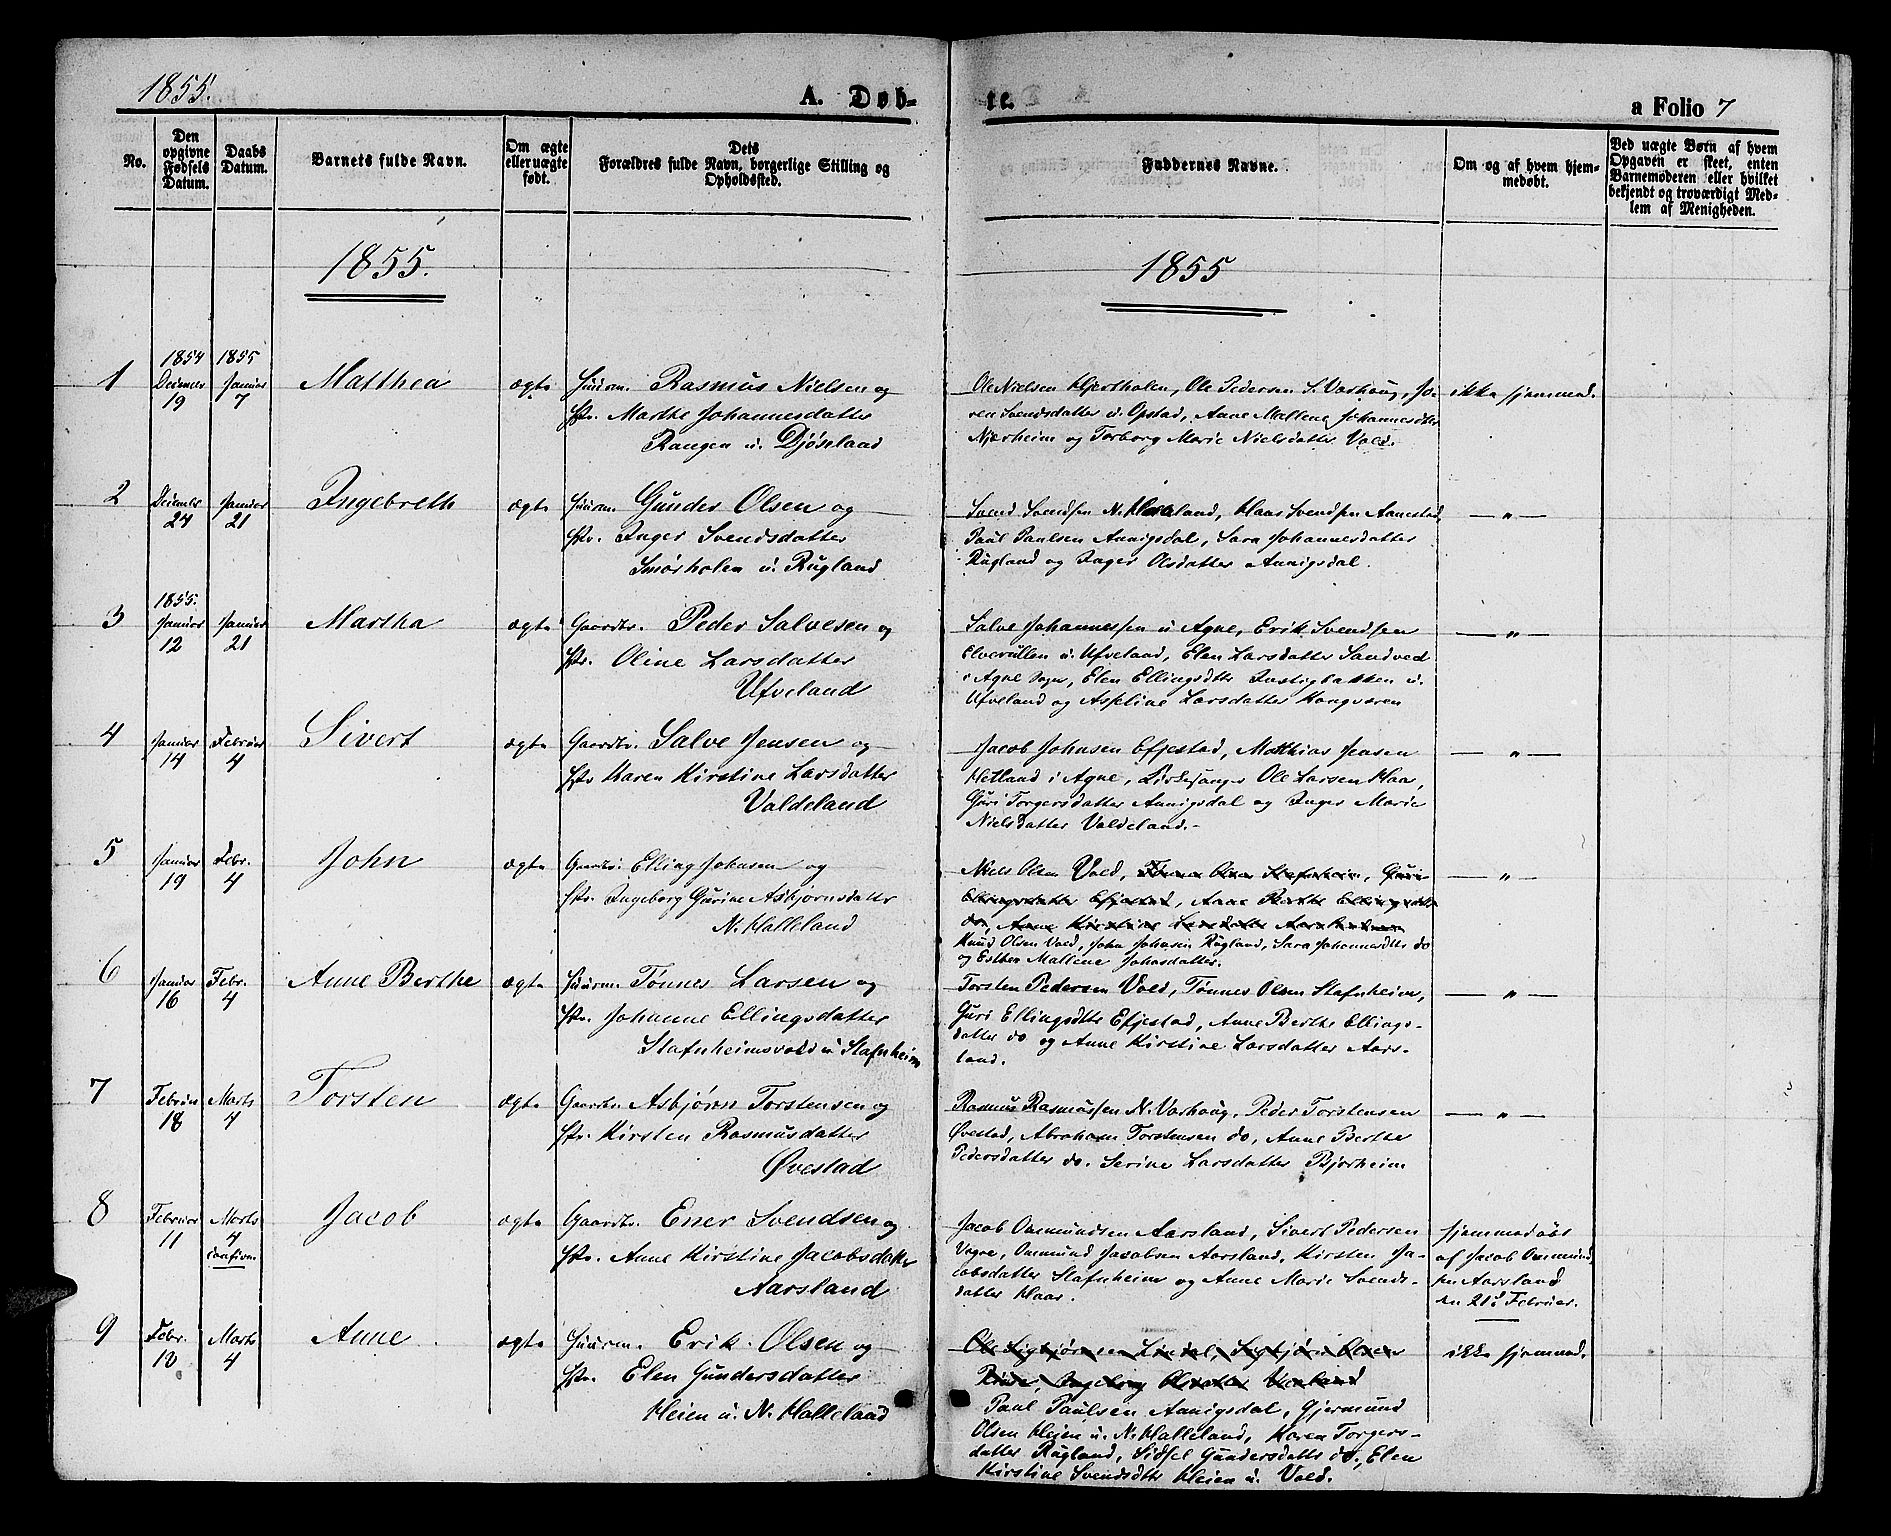 1855.
A. Døb-
te.
a Folio 7
No.
Den opgivne Fødsels Datum.
Daabs Datum.
Barnets fulde Navn.
Om ægte eller uægte født.
Dets Forældres fulde Navn, borgerlige Stilling og Opholdssted.
Faddernes Navne.
Om og af hvem hjemmedøbt.
Ved uægte Børn af hvem Opgaven er skeet, enten Barnemøderen eller hvilket bekjendt og troværdigt Medlem af Menigheden.
1855.
1855
1
1854 Decmber 19
1855 Januar 7
Matthea
ægte
Huusm. Rasmus Nielsen og
Hstr. Marthe Johannesdatter
Rangen u. Djøseland
Ole Nielsen Kjertholen, Ole Pedersen S. Varhoug, Jo-
ren Svendsdatter u. Opstad, Anne Mallene Johannesdtter
Njærheim og Torborg Marie Nielsdatter Vold.
ikke hjemmed.
2
Decmber 24
Januar 21
Ingebreth
ægte
Huusm. Gunder Olsen og
Hstr. Inger Svendsdatter
Smørholen u. Rugland
Svend Svendsen N. Halland, Klaus Svendsen Aanestad,
Paul Paulsen Aanigsdal, Sara Johannesdatter
Rugland og Inger Olsdatter Aanigsdal.
— " —
3
1855. Januar 12
Januar 21
Martha
ægte
Gaardbr. Peder Salvesen og
Hstr. Oline Larsdatter
Ufveland
Salve Johannessen u Agne, Erik Svendsen
u. Ufveland, Elen Larsdatter Sandved
i Agne Sogn, Elen Ellingsdtter u.
Ufveland og Asseline Larsdatter Kongvaren
— " —
4
Januar 14
Februar 4
Sivert
ægte
Gaardbr. Salve Jensen og
Hstr Karen Kirstine Larsdatter
Valdeland
Jacob Johnsen Efjestad, Matthias Jensen
Hetland i Agne, Kirkesanger Ole Larsen Haar,
Guri Torgersdatter Aanigsdal og Inger Marie
Nielsdatter Valdeland.
— " —
5
Januar 19
Febr. 4
John
ægte
Gaardbr. Elling Johnsen og
Hstr. Ingeborg Gurine Asbjørnsdatter
N. Halleland
Niels Olsen Vold, Tønnes Olsen Stafnheim, Guri
Ellingsdatter Efjestad, Anne Berthe Ellingsdtter
do, Anne Kirstine Larsdatter Aarsland
Knud Olsen Vold, John Johnsen Rugland, Sara Johannesdtter do
og Esther Mallene Johnsdatter.
— " —
6
Januar 16
Febr. 4
Anne Berthe
ægte
Huusm. Tønnes Larsen og
Hstr. Johanne Ellingsdatter
Stafnheimsvold u Stafnheim
Torsten Pedersen Vold, Tønnes Olsen Stafnheim,
Guri Ellingsdtter Efjestad, Anne Berthe Ellings-
datter do og Anne Kirstine Larsdatter Aars-
land.
— " —
7
Februar 18
Marts 4
Torsten
Ægte
Gaardbr. Asbjørn Torstensen og
Hstr. Kirsten Rasmusdatter
Øvestad
Rasmus Rasmussen N. Varhoug, Peder Torstensen
Øvestad, Abraham Torstensen do, Anne Berthe
Pedersdatter do. Serine Larsdatter Bjorheim
— " —
8
Februar 11
Marts 4 confirm.
Jacob
ægte
Gaardbr. Ener Svendsen og
Hstr. Anne Kirstine Jacobsdatter
Aarsland
Jacob Ommundsen Aarsland, Sivert Pedersen
Vagne, Ommund Jacobsen Aarsland, Kirsten Ja-
cobsdatter Stafnheim og Anne Marie Svends-
datter Haar.
hjemmedøbt
af Jacob Ommund-
sen Aarsland
den 21de Februar.
9
Febr. 18
Marts 4
Anne
ægte
Huusm. Erik Olsen og
Hstr. Elen Gundersdatter
Heien u. N. Halleland
Ole Sigbjørnsen Sigbjørn Olsen
Ingeborg Olsdatter
Paul Paulsen Aanigsdal, Gjermund
Olsen Heien u. N. Halleland, Karen Torgers-
datter Rugland, Sidsel Gundersdatter do, Elen
Kirstine Svendsdtter Heien u. Vold.
ikke hjemmed.